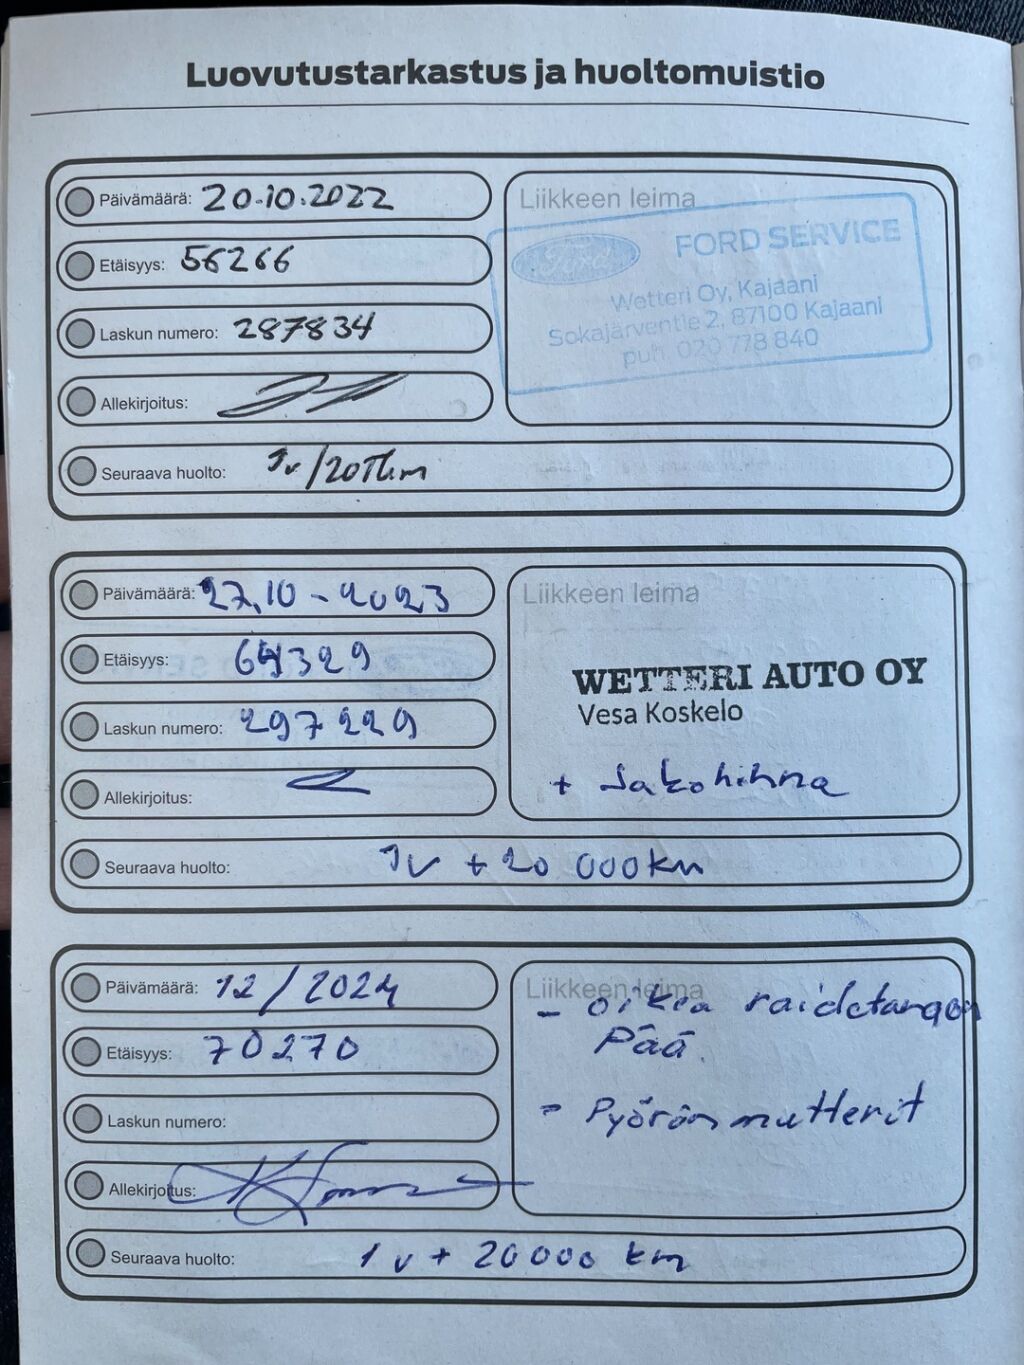 Luovutustarkastus ja huoltomuistio
Päivämäärä: 20.10.2022
Etäisyys: 56266
Laskun numero: 287834
Allekirjoitus:
Seuraava huolto: 1v/20Tkm
Liikkeen leima
Ford
FORD SERVICE
Wetteri Oy, Kajaani
Sokajärventie 2, 87100 Kajaani
puh. 020 778 840
Päivämäärä: 27.10-2023
Etäisyys: 64329
Laskun numero: 297229
Allekirjoitus:
Seuraava huolto: 1v + 20 000km
Liikkeen leima
WETTERI AUTO OY
Vesa Koskelo
+ Jakohihna
Päivämäärä: 12/2024
Etäisyys: 70270
Laskun numero:
Allekirjoitus:
Seuraava huolto: 1v + 20000 km
Liikkeen leima
- oikea raidetangon
Pää.
- Pyöränmutterit